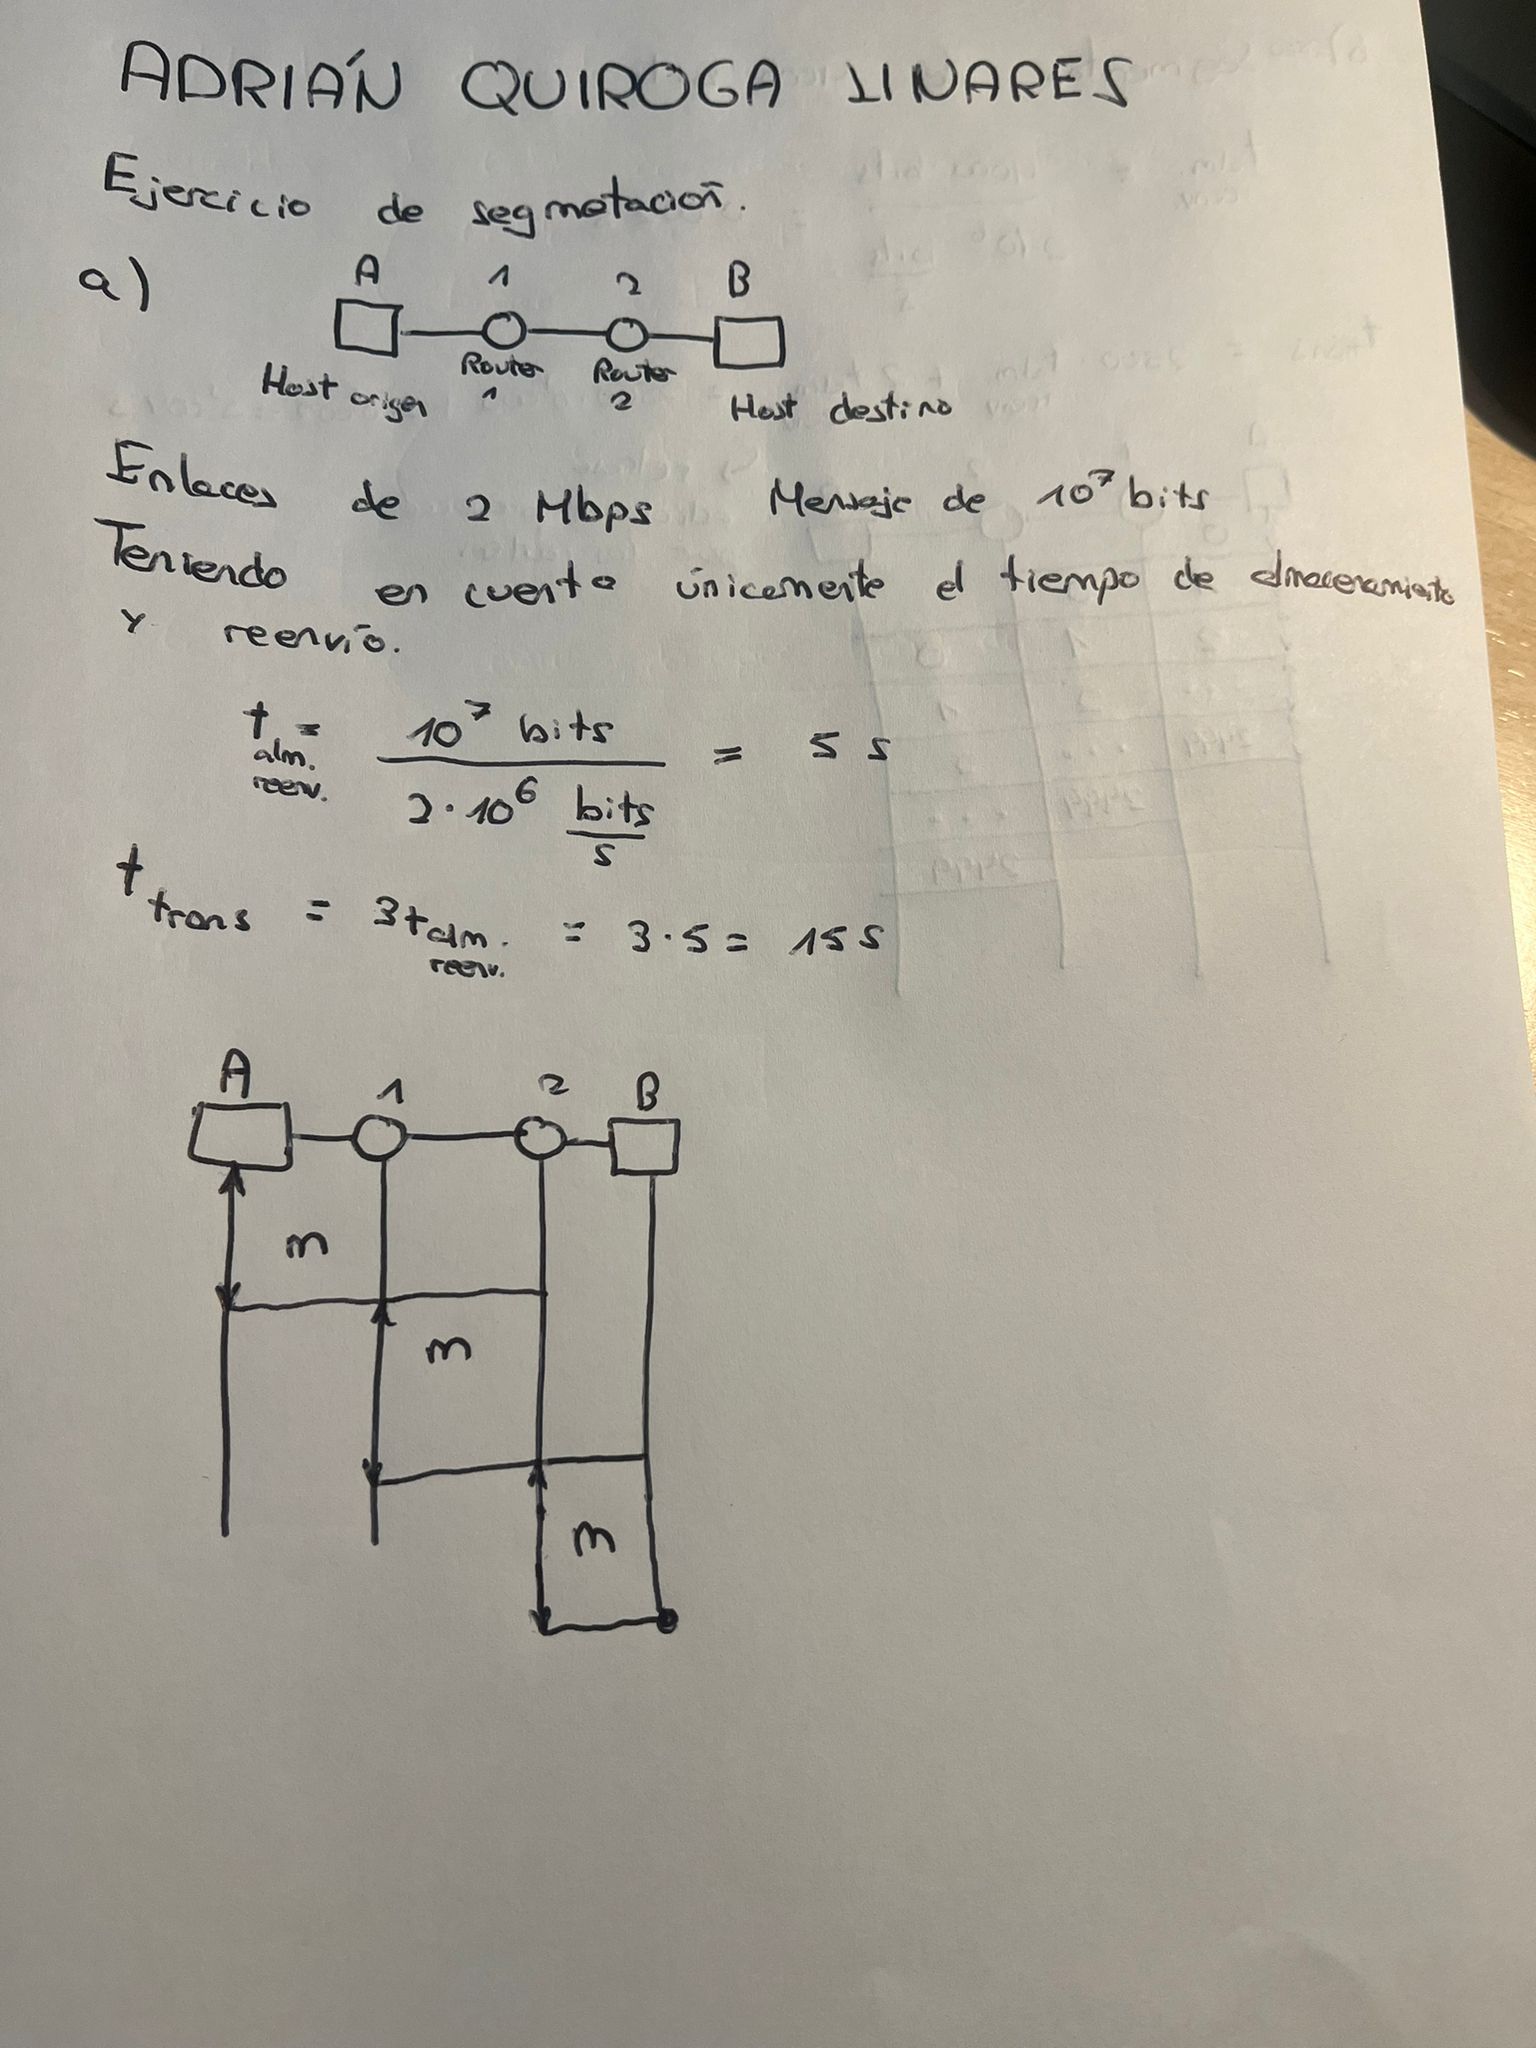 ADRIÁN QUIROGA LINARES
Ejercicio de segmotación.
a)
A 1 2 B
Host origen Router 1 Router 2 Host destino
Enlaces de 2 Mbps Mensaje de 10⁷ bits
Teniendo en cuenta únicamente el tiempo de almacenamiento
y reenvío.
t alm. reenv. = 10⁷ bits / 2·10⁶ bits/s = 5 s
t trans = 3t alm. reenv. = 3·5 = 15 s
A 1 2 B
m
m
m